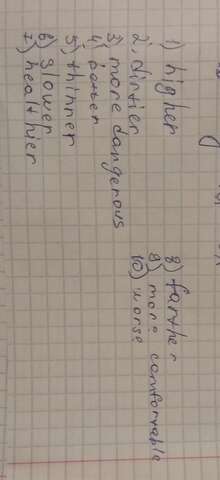 1) higher
2) dirtier
3) more dangerous
4)
5) thinner
6) slower
7) healthier
8) farther
9) more comfortable
10) worse